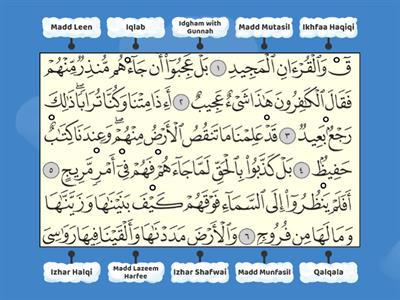 Madd Leen
Iqlab
Idgham with
Gunnah
Madd Mutasil
Ikhfaa Haqiqi
قٓ وَالْقُرْءَانِ الْمَجِيدِ ۝١ بَلْ عَجِبُوٓا أَن جَآءَهُم مُّنذِرٌ مِّنْهُمْ
فَقَالَ الْكَٰفِرُونَ هَٰذَا شَىْءٌ عَجِيبٌ ۝٢ أَءِذَا مِتْنَا وَكُنَّا تُرَابًا ۖ ذَٰلِكَ
رَجْعٌۢ بَعِيدٌ ۝٣ قَدْ عَلِمْنَا مَا تَنقُصُ الْأَرْضُ مِنْهُمْ ۖ وَعِندَنَا كِتَٰبٌ
حَفِيظٌۢ ۝٤ بَلْ كَذَّبُوا بِالْحَقِّ لَمَّا جَآءَهُمْ فَهُمْ فِىٓ أَمْرٍ مَّرِيجٍ ۝٥
أَفَلَمْ يَنظُرُوٓا إِلَى السَّمَآءِ فَوْقَهُمْ كَيْفَ بَنَيْنَٰهَا وَزَيَّنَّٰهَا
وَمَا لَهَا مِن فُرُوجٍ ۝٦ وَالْأَرْضَ مَدَدْنَٰهَا وَأَلْقَيْنَا فِيهَا رَوَٰسِىَ
Izhar Halqi
Madd Lazeem
Harfee
Izhar Shafwai
Madd Munfasil
Qalqala